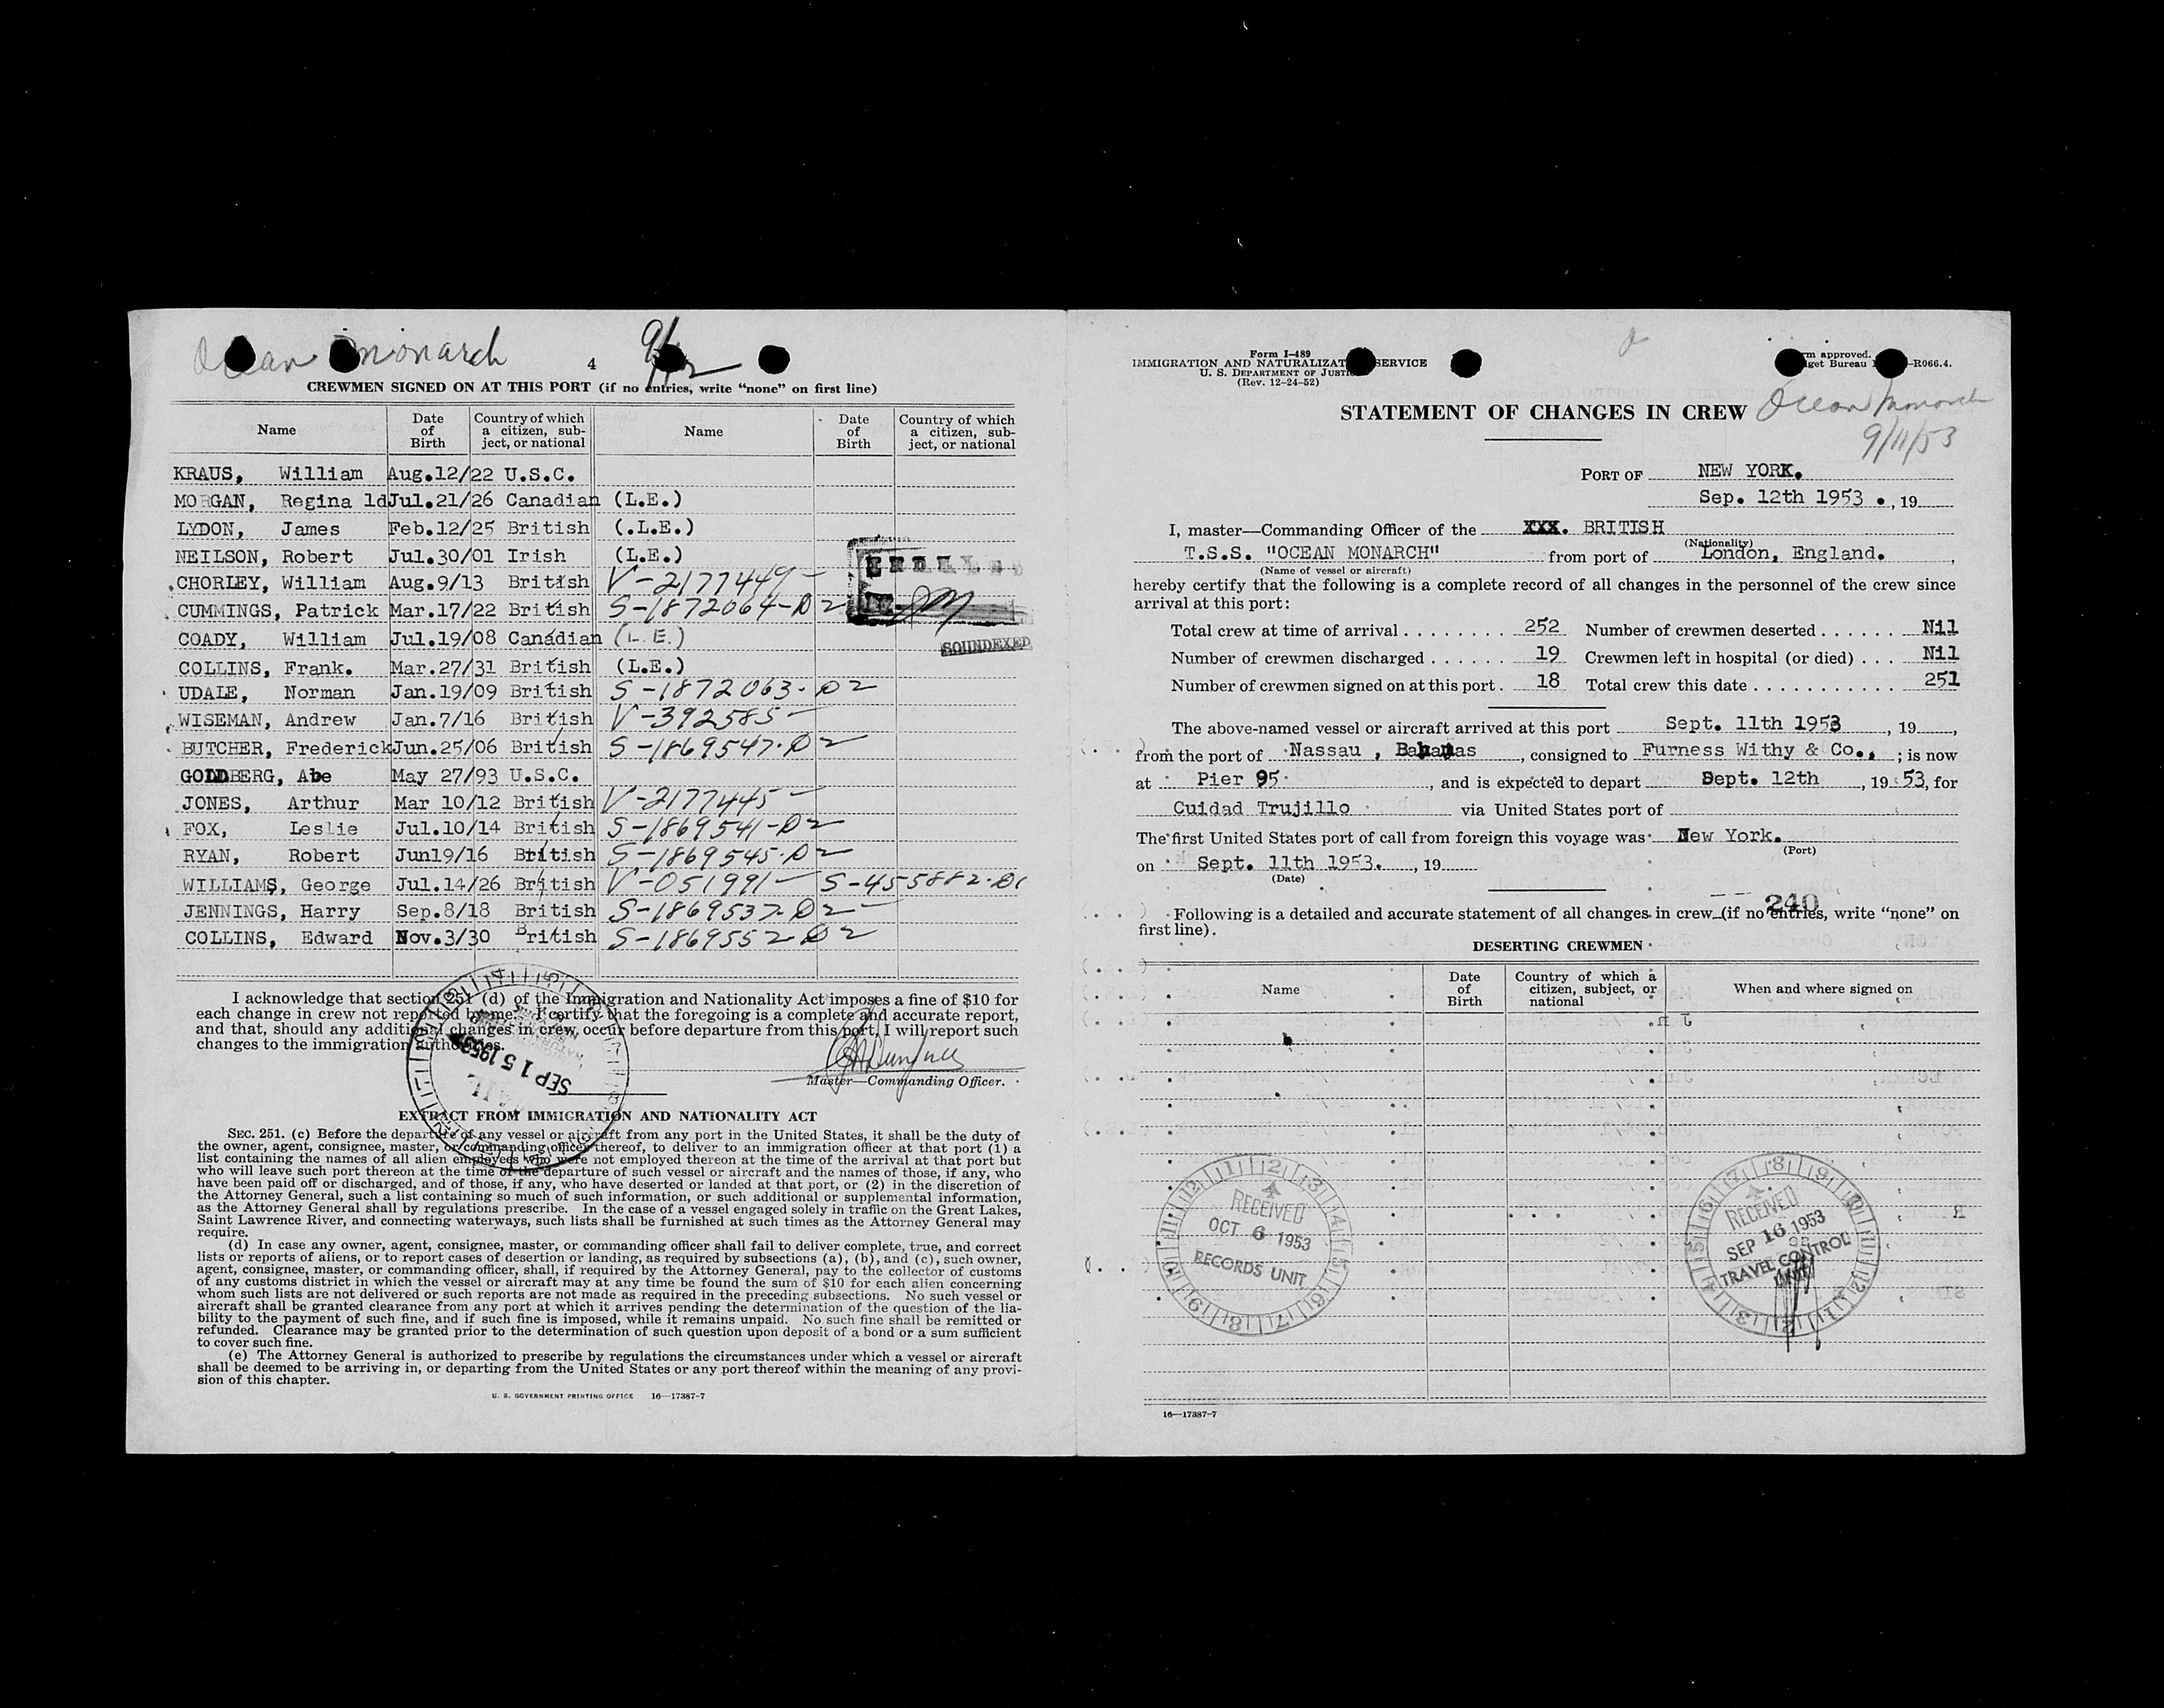 Ocean Monarch
4
9/12
CREWMEN SIGNED ON AT THIS PORT (if no entries, write "none" on first line)
Name Date of Birth Country of which a citizen, subject, or national Name Date of Birth Country of which a citizen, subject, or national
KRAUS, William Aug.12/22 U.S.C.
MORGAN, Regina ld Jul.21/26 Canadian (L.E.)
LYDON, James Feb.12/25 British (.L.E.)
NEILSON, Robert Jul.30/01 Irish (L.E.)
CHORLEY, William Aug.9/13 British V-2177449
CUMMINGS, Patrick Mar.17/22 British S-1872064-D2
COADY, William Jul.19/08 Canadian (L.E.)
COLLINS, Frank. Mar.27/31 British (L.E.)
UDALE, Norman Jan.19/09 British S-1872063-D2
WISEMAN, Andrew Jan.7/16 British V-392585
BUTCHER, Frederick Jun.25/06 British S-1869547-D2
GOLDBERG, Abe May 27/93 U.S.C.
JONES, Arthur Mar 10/12 British V-2177445
FOX, Leslie Jul.10/14 British S-1869541-D2
RYAN, Robert Jun19/16 British S-1869545-D2
WILLIAMS, George Jul.14/26 British V-051991 S-455882-D1
JENNINGS, Harry Sep.8/18 British S-1869537-D2
COLLINS, Edward Nov.3/30 British S-1869552 D2
SOUNDEXED
I acknowledge that section 251 (d) of the Immigration and Nationality Act imposes a fine of $10 for
each change in crew not reported by me. I certify that the foregoing is a complete and accurate report,
and that, should any additional changes in crew occur before departure from this port, I will report such
changes to the immigration authorities.
SEP 15 1953
Master—Commanding Officer.
EXTRACT FROM IMMIGRATION AND NATIONALITY ACT
SEC. 251. (c) Before the departure of any vessel or aircraft from any port in the United States, it shall be the duty of
the owner, agent, consignee, master, or commanding officer thereof, to deliver to an immigration officer at that port (1) a
list containing the names of all alien employees who were not employed thereon at the time of the arrival at that port but
who will leave such port thereon at the time of the departure of such vessel or aircraft and the names of those, if any, who
have been paid off or discharged, and of those, if any, who have deserted or landed at that port, or (2) in the discretion of
the Attorney General, such a list containing so much of such information, or such additional or supplemental information,
as the Attorney General shall by regulations prescribe. In the case of a vessel engaged solely in traffic on the Great Lakes,
Saint Lawrence River, and connecting waterways, such lists shall be furnished at such times as the Attorney General may
require.
(d) In case any owner, agent, consignee, master, or commanding officer shall fail to deliver complete, true, and correct
lists or reports of aliens, or to report cases of desertion or landing, as required by subsections (a), (b), and (c), such owner,
agent, consignee, master, or commanding officer, shall, if required by the Attorney General, pay to the collector of customs
of any customs district in which the vessel or aircraft may at any time be found the sum of $10 for each alien concerning
whom such lists are not delivered or such reports are not made as required in the preceding subsections. No such vessel or
aircraft shall be granted clearance from any port at which it arrives pending the determination of the question of the lia-
bility to the payment of such fine, and if such fine is imposed, while it remains unpaid. No such fine shall be remitted or
refunded. Clearance may be granted prior to the determination of such question upon deposit of a bond or a sum sufficient
to cover such fine.
(e) The Attorney General is authorized to prescribe by regulations the circumstances under which a vessel or aircraft
shall be deemed to be arriving in, or departing from the United States or any port thereof within the meaning of any provi-
sion of this chapter.
U. S. GOVERNMENT PRINTING OFFICE 16—17387-7
Form I-489
IMMIGRATION AND NATURALIZAT SERVICE
U. S. DEPARTMENT OF JUSTICE
(Rev. 12-24-52)
m approved.
get Bureau -R066.4.
STATEMENT OF CHANGES IN CREW
Ocean Monarch
9/11/53
PORT OF NEW YORK.
Sep. 12th 1953 ., 19
I, master—Commanding Officer of the XXX. BRITISH
(Nationality)
T.S.S. "OCEAN MONARCH" from port of London, England.,
(Name of vessel or aircraft)
hereby certify that the following is a complete record of all changes in the personnel of the crew since
arrival at this port:
Total crew at time of arrival . . . . . . . . 252 Number of crewmen deserted . . . . . . Nil
Number of crewmen discharged . . . . . . 19 Crewmen left in hospital (or died) . . . Nil
Number of crewmen signed on at this port . 18 Total crew this date . . . . . . . . . . . . 251
The above-named vessel or aircraft arrived at this port Sept. 11th 1953, 19,
from the port of Nassau , Bahamas, consigned to Furness Withy & Co., ; is now
at Pier 95, and is expected to depart Sept. 12th, 19 53, for
Cuidad Trujillo via United States port of
The first United States port of call from foreign this voyage was New York.
(Port)
on Sept. 11th 1953., 19
(Date)
240
Following is a detailed and accurate statement of all changes in crew (if no entries, write "none" on
first line).
DESERTING CREWMEN
Name Date of Birth Country of which a citizen, subject, or national When and where signed on
RECEIVED
OCT 6 1953
RECORDS UNIT
RECEIVED
SEP 16 1953
TRAVEL CONTROL
UNIT
16—17387-7